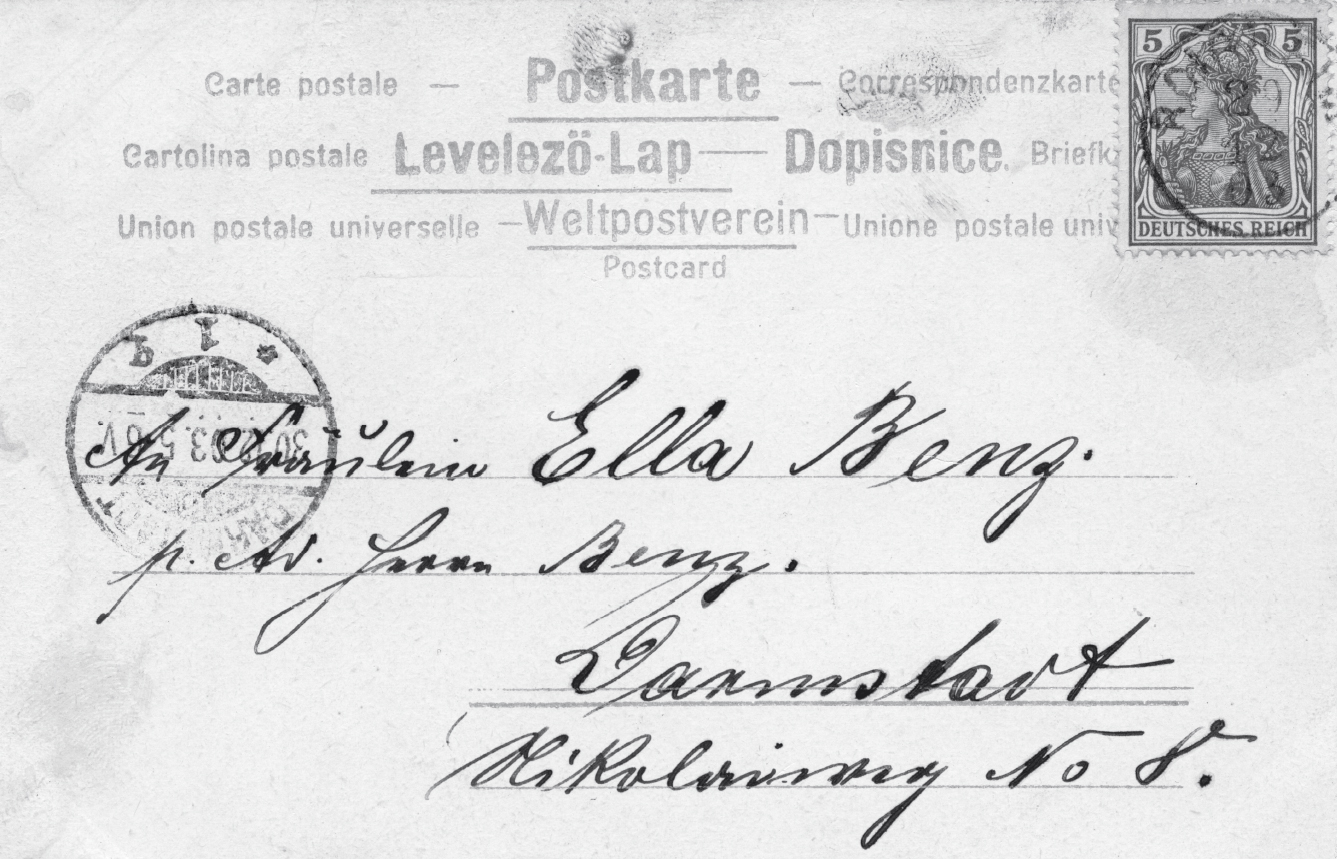 Carte postale — Postkarte — Correspondenzkarte
Cartolina postale Levelezö-Lap — Dopisnice. Briefk
Union postale universelle — Weltpostverein — Unione postale univ
Postcard
5 5
DEUTSCHES REICH
* 1 q
30.12.03. 5-6 V.
DARMSTADT
An Fräulein Ella Benz.
p. Ad. Herrn Benz.
Darmstadt
Nikolaiweg No 8.